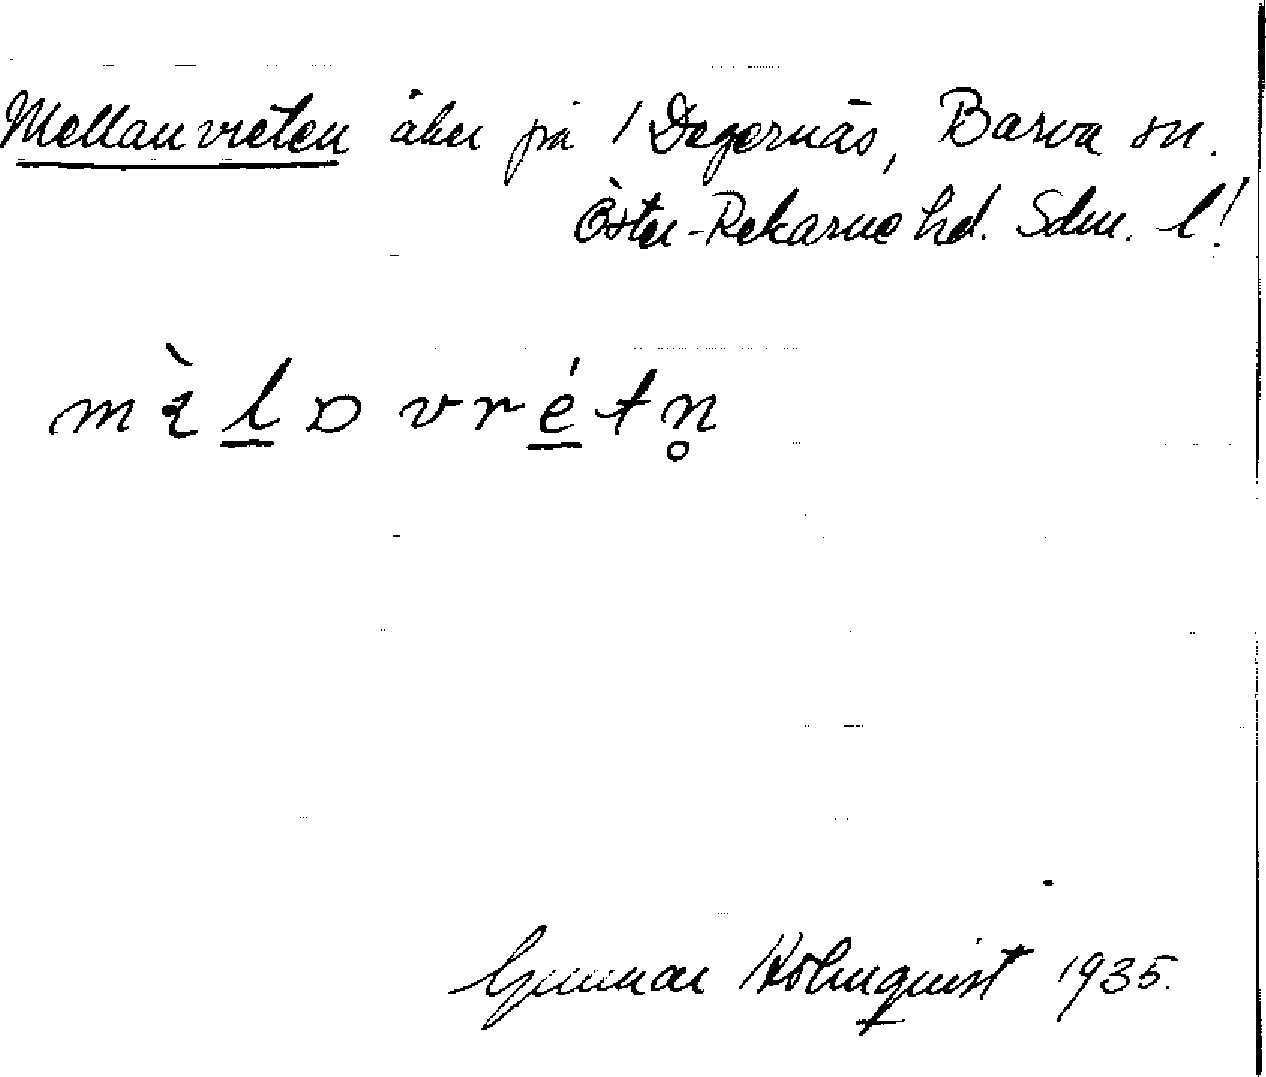 Mellanvreten åker på 1 Degernäs, Barva sn.
Öster-Rekarne hd. Sdm. l!
Gunnar Holmquist 1935.